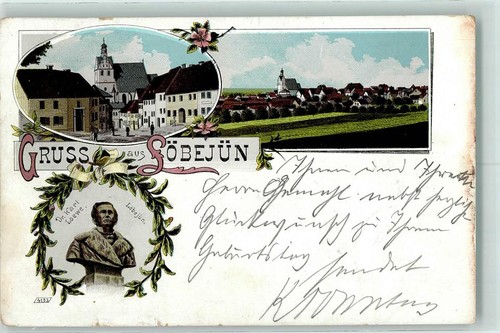 GRUSS aus LÖBEJÜN
Dr. Karl Loewe.
Löbejün.
Ihnen und Ihrem
Herrn Gemahl nebst herzlich
Glückwunsch zu Ihrem
Geburtstag sendet